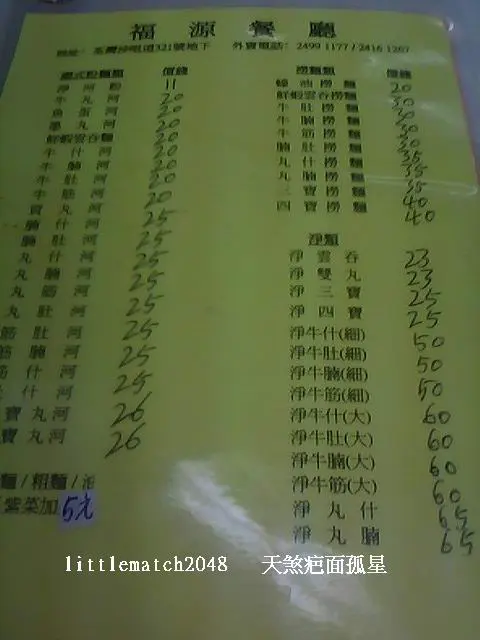 福源餐廳
地址: 荃灣沙咀道321號地下 外賣電話: 2499 1177 / 2416 1267
潮式粉麵類 價錢
淨河粉 11
牛丸河 20
魚蛋河 20
墨丸河 20
鮮蝦雲吞麵 20
牛什河 20
牛腩河 20
牛肚河 20
牛筋河 20
貢丸河 25
腩什河 25
腩肚河 25
丸什河 25
丸腩河 25
丸筋河 25
筋肚河 25
筋腩河 25
筋什河 25
什河
寶丸河 26
寶丸河 26
麵/粗麵/油
紫菜加5元
撈麵類 價錢
蠔油撈麵 20
鮮蝦雲吞撈麵 30
牛肚撈麵 30
牛腩撈麵 30
牛筋撈麵 30
腩肚撈麵 35
丸什撈麵 35
丸腩撈麵 35
三寶撈麵 40
四寶撈麵 40
淨類
淨雲吞 23
淨雙丸 23
淨三寶 25
淨四寶 25
淨牛什(細) 50
淨牛肚(細) 50
淨牛腩(細) 50
淨牛筋(細)
淨牛什(大) 60
淨牛肚(大) 60
淨牛腩(大) 60
淨牛筋(大) 60
淨丸什 65
淨丸腩 65
littlematch2048 天煞疤面孤星